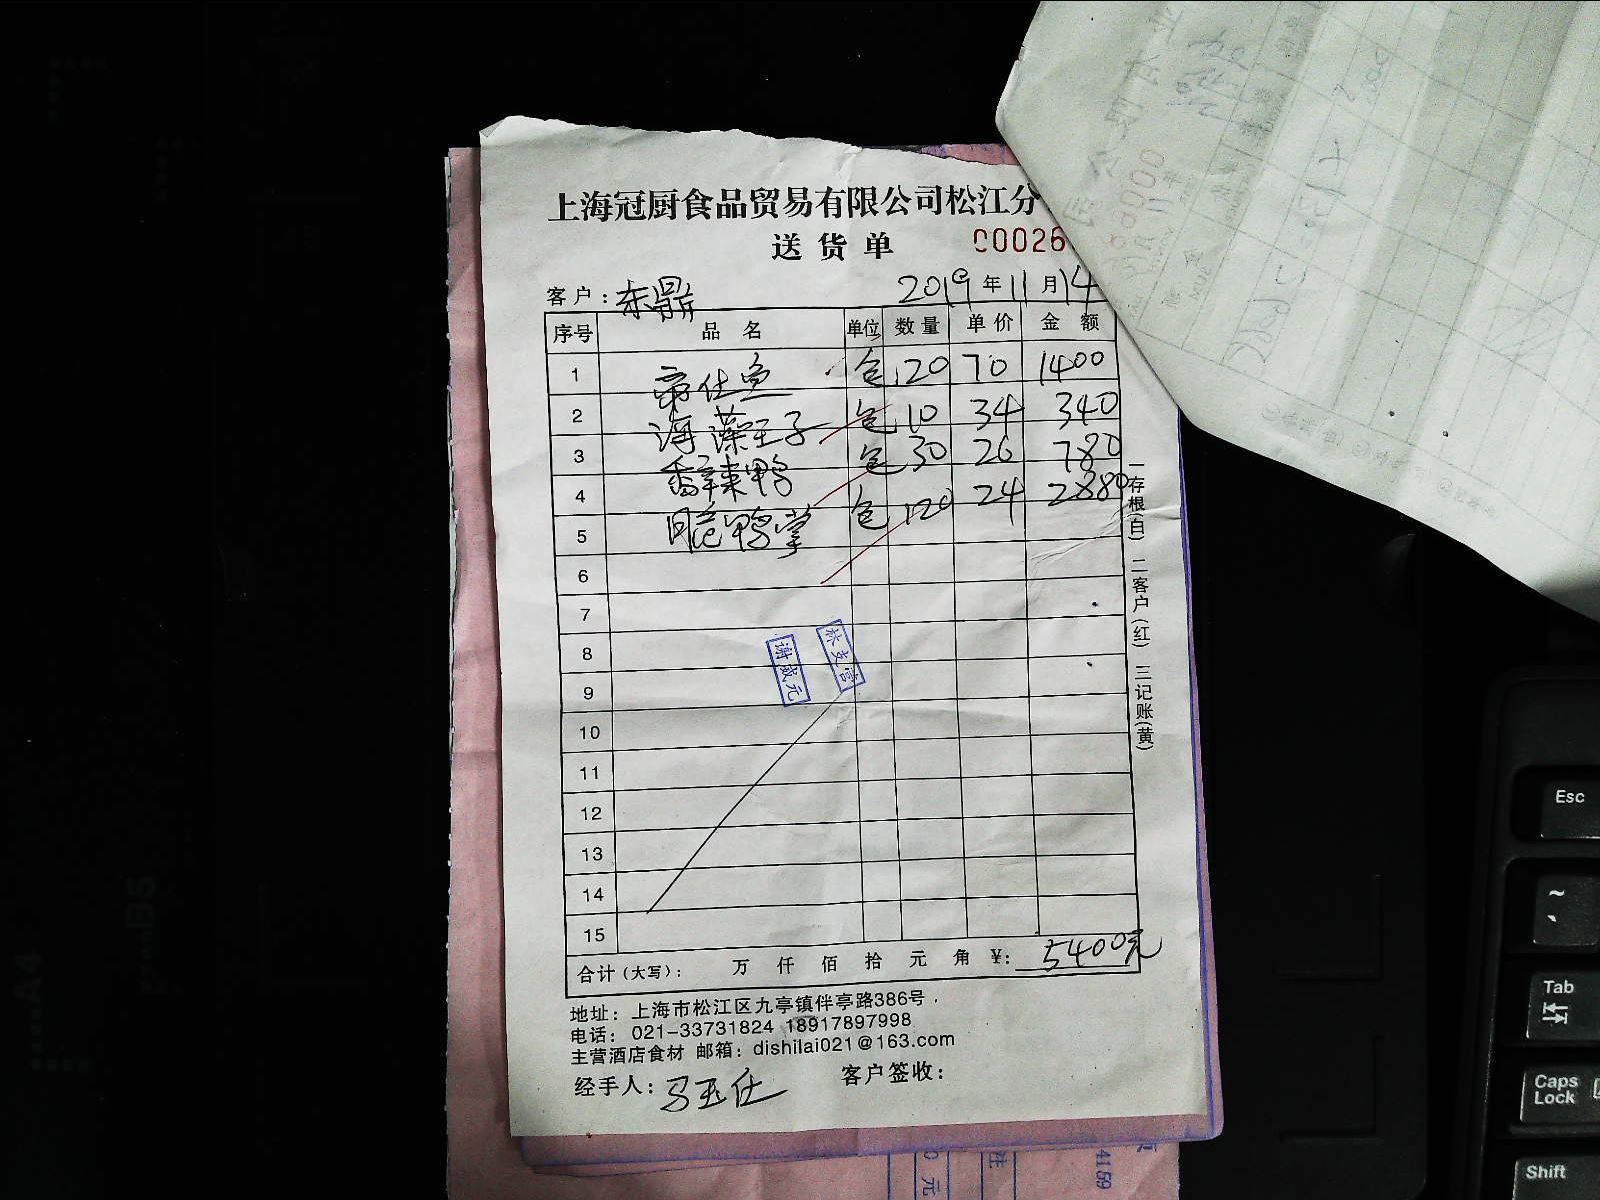 上海冠厨食品贸易有限公司松江分
送货单 C0026
客户：东鼎 2019年11月14
序号 品名 单位 数量 单价 金额
1 帝仕鱼 包 20 70 1400
2 海藻王子 包 10 34 340
3 香辣鸭 包 30 26 780
4 鸭掌 包 120 24 2880
5
6
7
8
9
10
11
12
13
14
15
林支营
谢成元
合计（大写）： 万 仟 佰 拾 元 角 ¥： 5400元
一存根（白） 二客户（红） 三记账（黄）
地址：上海市松江区九亭镇伴亭路386号
电话：021-33731824 18917897998
主营酒店食材 邮箱：dishilai021@163.com
经手人：马玉仕 客户签收：
Esc
~
Tab
Caps Lock
Shift
A4
B5
0元
注
4159